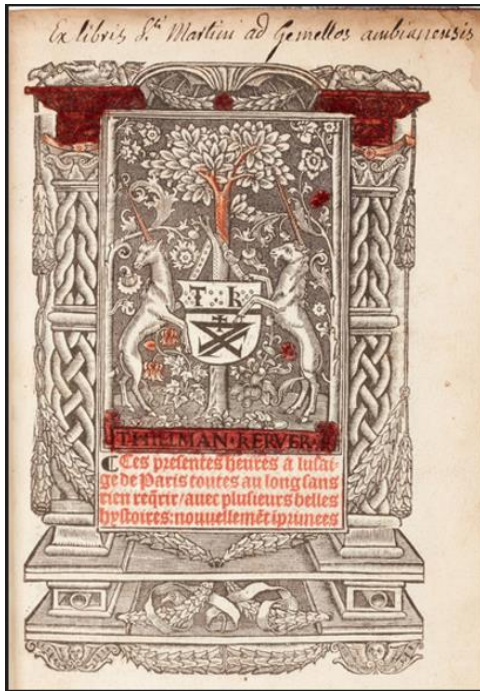 Ex libris S.ti Martini ad Gemellos ambianensis
T K
THIELMAN · KERVER ·
Ces presentes heures a lusai-
ge de Paris toutes au long sans
rien req̃rir / auec plusieurs belles
hystoires: nouuellemẽt ĩprimees